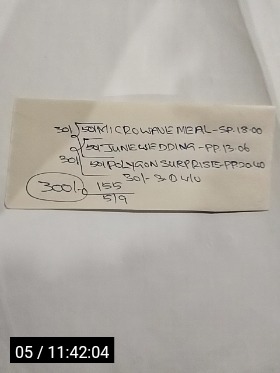 30/- 50/- MICROWAVE MEAL-SP.18.00
50/- JUNE WEDDING-PP13.06
30/- 50/- POLYGON SURPRISE-PP20.40
30/- 3 D W/U
300/- 155
5/9
05 / 11:42:04